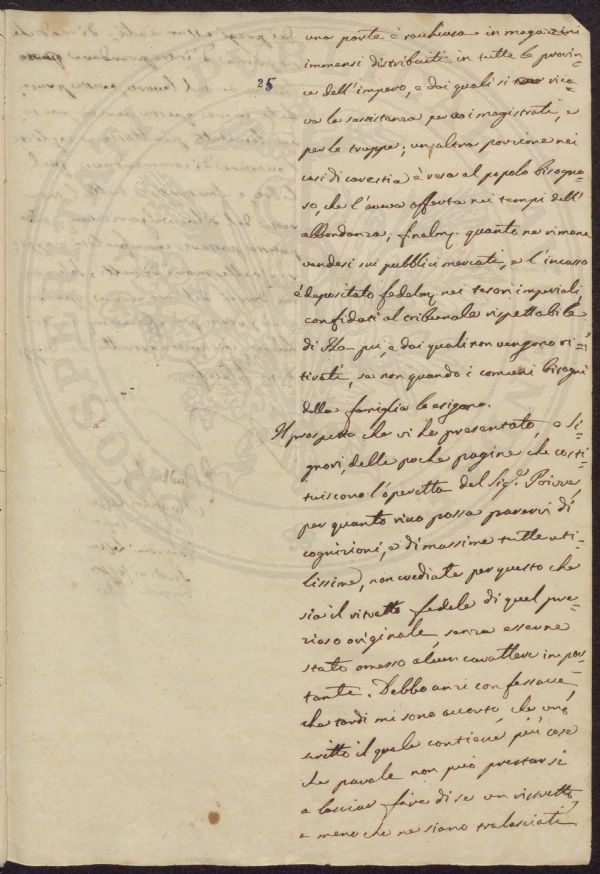 25
una parte è racchiusa in magazzini
immensi distribuiti in tutte le provin=
ce dell'impero, e dai quali si rica=
va la sussistenza per i magistrati, e
per le truppe; un'altra porzione nei
casi di carestia è resa al popolo bisogno=
so, che l'aveva offerta nei tempi dell'
abbondanza; finalm. quanto ne rimane
vendesi sui pubblici mercati, e l'incasso
è depositato fedelm. nei tesori imperiali,
confidati al tribunale rispettabile
di Ho-pù, e dai quali non vengono ri=
tirati, se non quando i comuni bisogni
della famiglia lo esigono.
Il prospetto che vi ho presentato, o Si=
gnori, delle poche pagine che costi=
tuiscono l'operetta del Sig.r Poivre,
per quanto ricco possa parervi di
cognizioni, e di massime tutte uti=
lissime, non crediate per questo che
sia il ritratto fedele di quel pre=
zioso originale, senza esserne
stato omesso alcun carattere impor=
tante. Debbo anzi confessare,
che tardi mi sono accorto, che uno
scritto il quale contiene più cose
che parole non può prestarsi
a lasciar fare di se un ristretto,
a meno che ne siano tralasciati